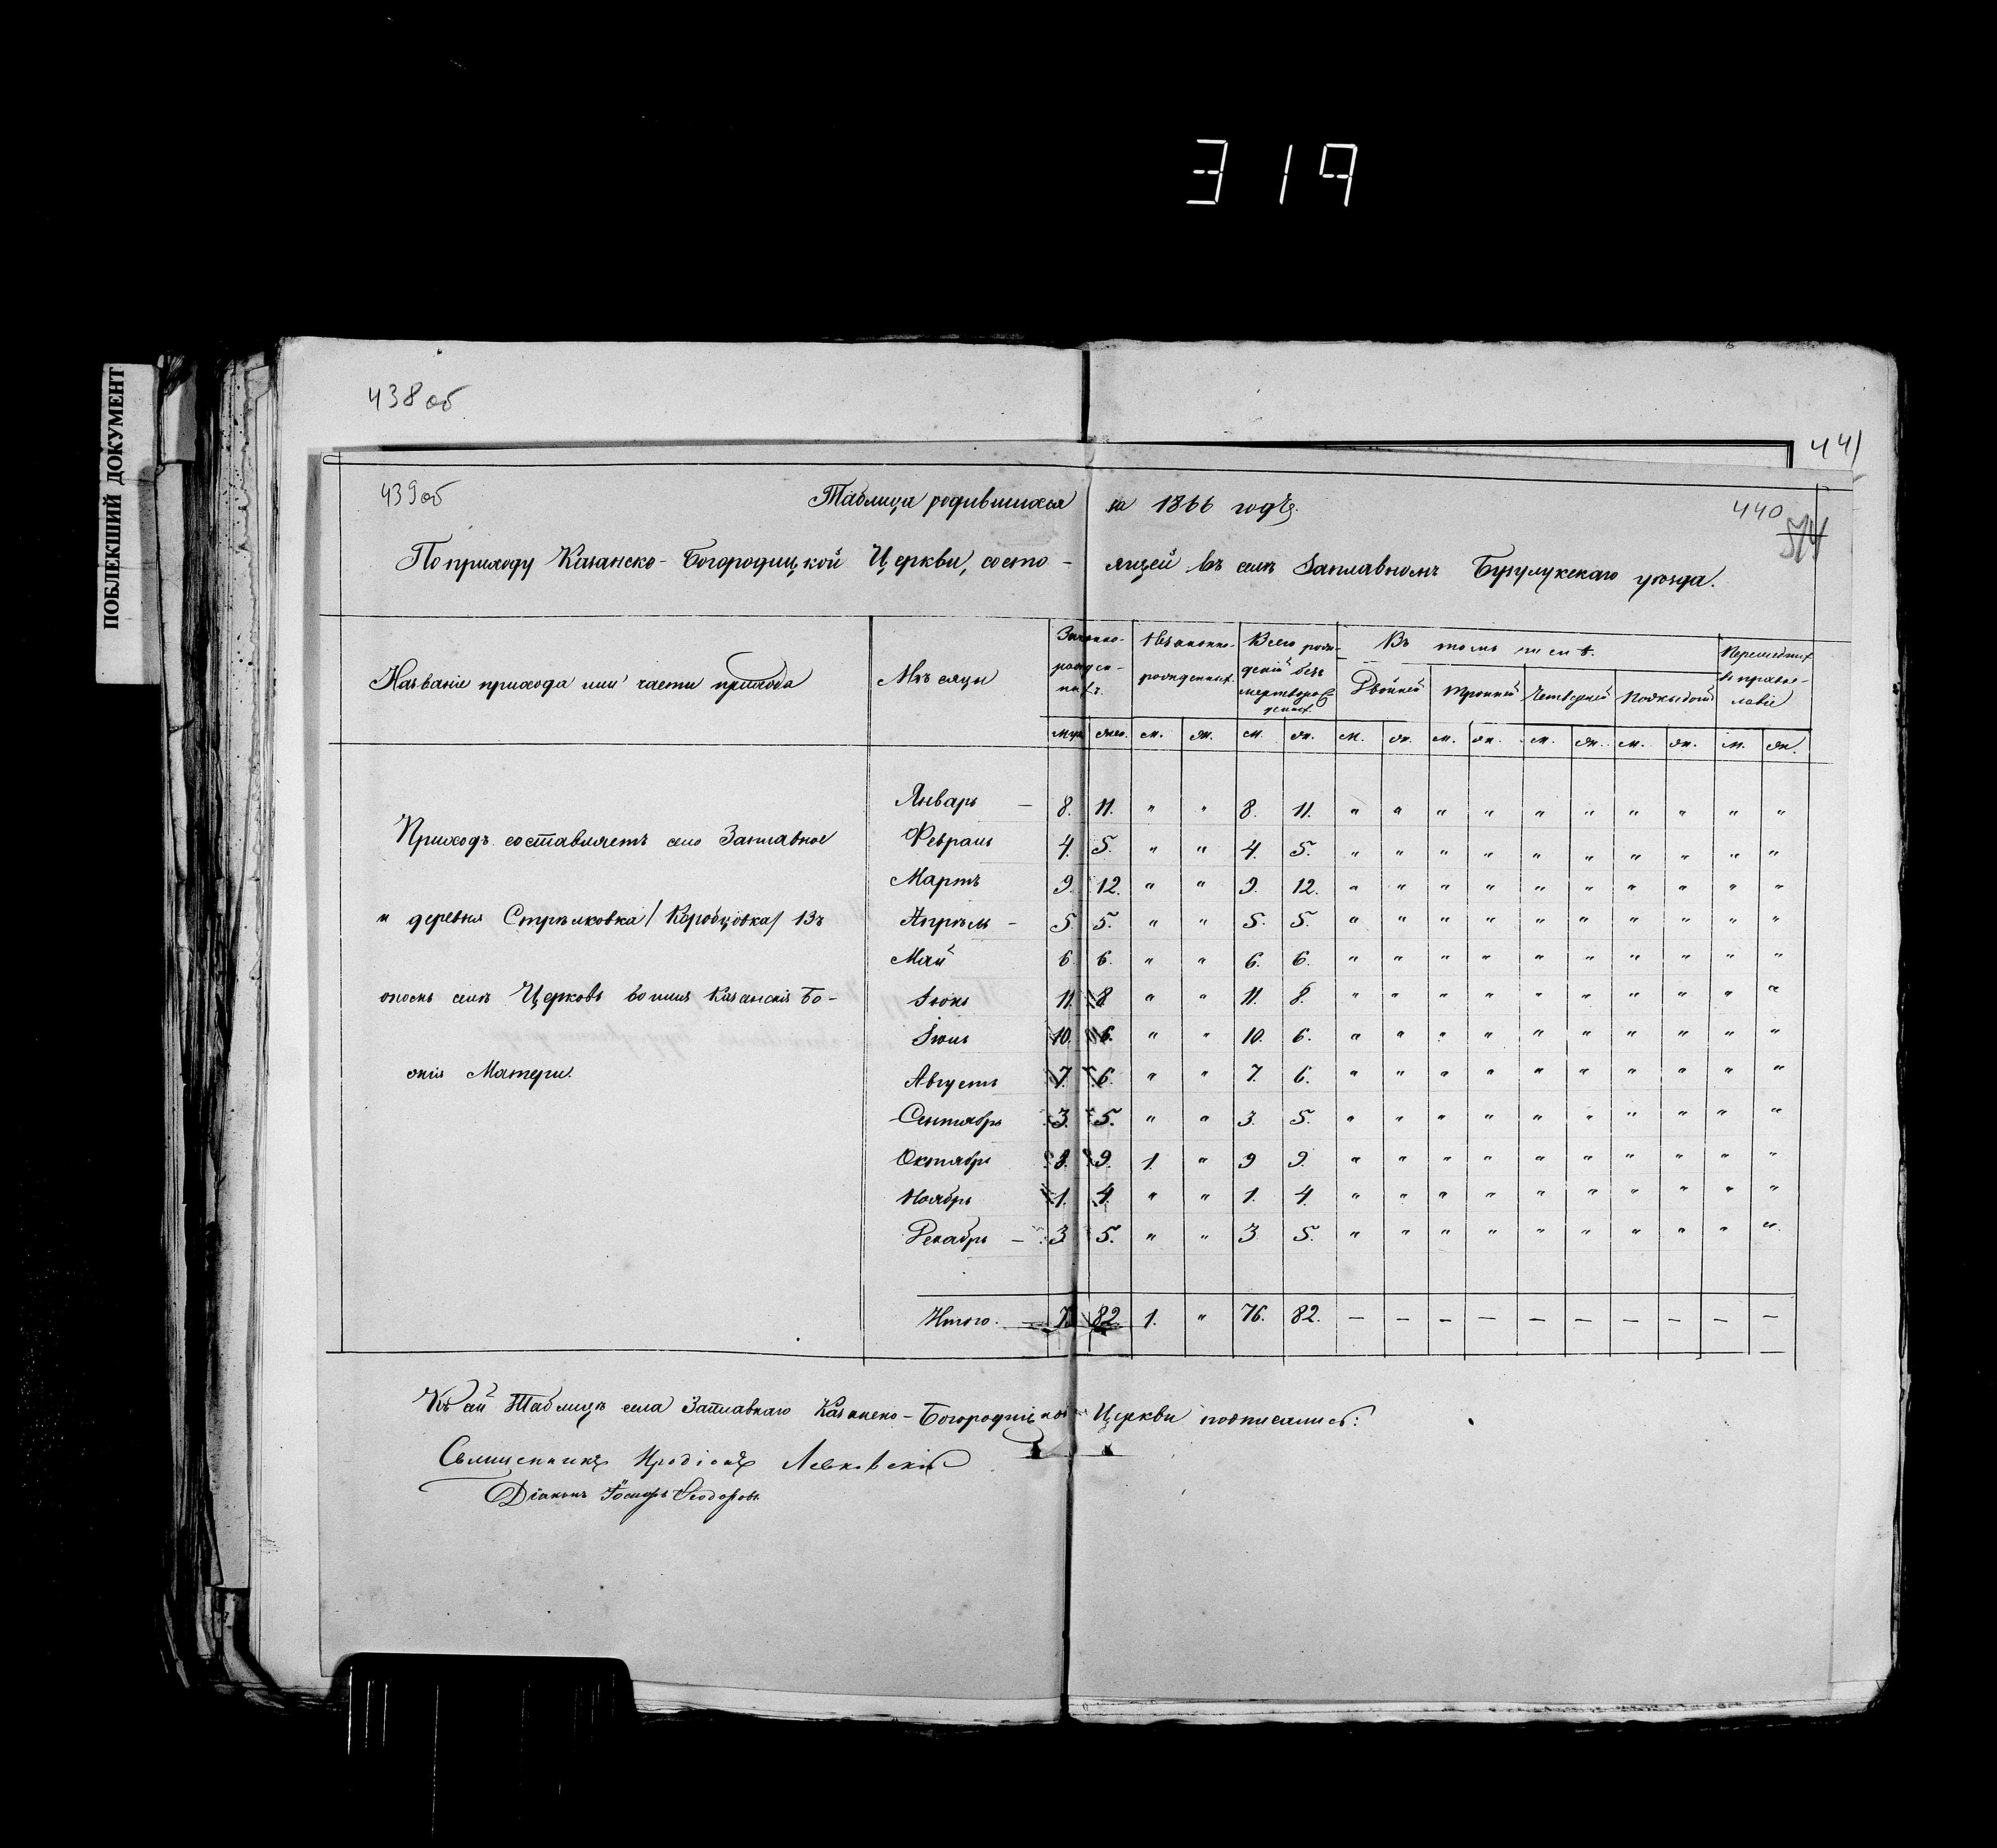 319
ПОБЛЕКШИЙ ДОКУМЕНТ
438 об
441
439 об
440
574
Таблица родившихся за 1866 годъ.
По приходу Казанско-Богородицкой Церкви, состо-ящей въ селѣ Заплавномъ Бузулукскаго уѣзда.
Названіе прихода или части прихода
Мѣсяцы
Законно-рожден-ныхъ.
Незаконно-рожденных.
Всего рож-деній безъ мертворож-денных.
Въ томъ числѣ.
Двойней
тройней
Четверней
Подкидышей
Перешедших въ правос-лавіе
муж. жен. м. ж. м. ж. м. ж. м. ж. м. ж. м. ж. м. ж.
Январь — 8. 11. " " 8. 11. " " " " " " " " " "
Приходъ составляетъ село Заплавное
Февраль 4. 5. " " 4. 5. " " " " " " " " " "
Мартъ 9. 12. " " 9. 12. " " " " " " " " " "
и деревня Стрѣлковка /Коробцовка/ Въ
Апрѣль — 5. 5. " " 5. 5. " " " " " " " " " "
Май 6. 6. " " 6. 6. " " " " " " " " " "
ономъ селѣ Церковь во имя Казанскія Бо-
Іюнь 11. 8. " " 11. 8. " " " " " " " " " "
Іюль 10. 6. " " 10. 6. " " " " " " " " " "
жія Матери.
Августъ 7. 6. " " 7. 6. " " " " " " " " " "
Сентябрь 3. 5. " " 3. 5. " " " " " " " " " "
Октябрь 8. 9. 1. " 9 9. " " " " " " " " " "
Ноябрь 1. 4. " " 1. 4. " " " " " " " " " "
Декабрь — 3 5. " " 3 5. " " " " " " " " " "
Итого. — 82 1. " 76. 82. — — — — — — — — — —
Къ сей Таблицѣ села Заплавнаго Казанско-Богородицкой Церкви подписались:
Священникъ Иродіонъ Левковскій
Діаконъ Іосифъ Ѳеодоровъ